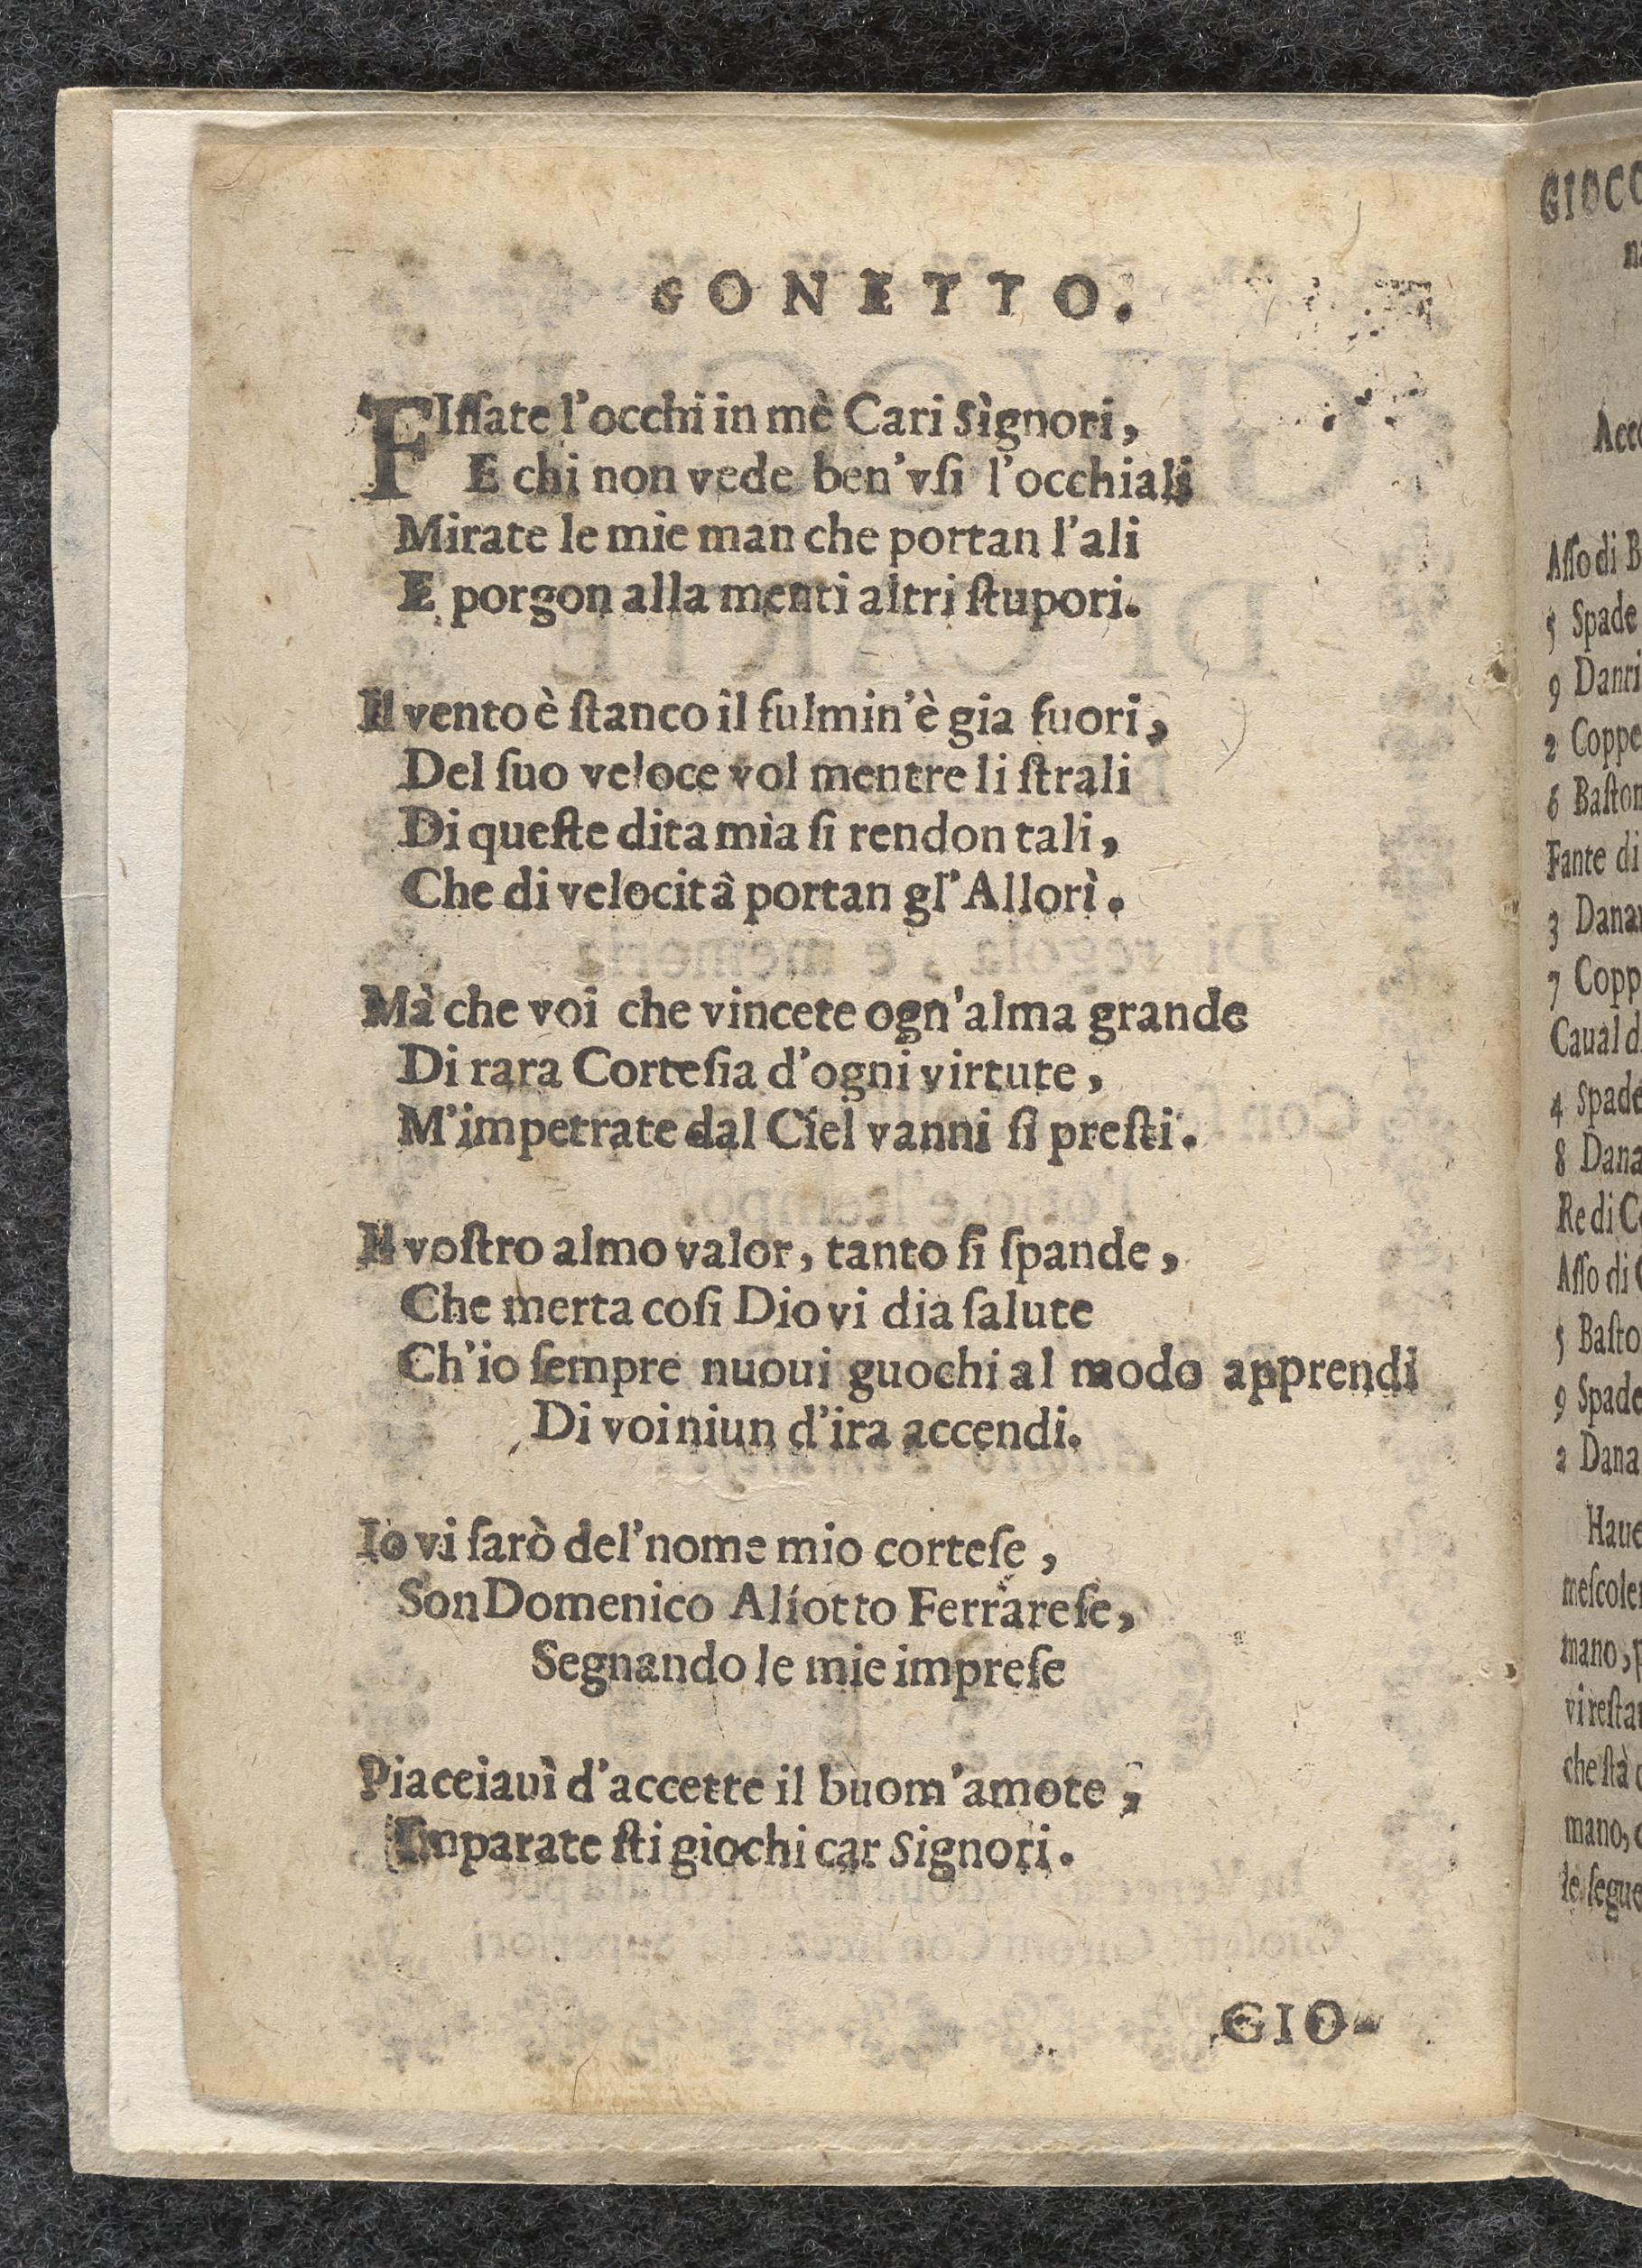 SONETTO.
FIſſate l'occhi in mè Cari Sìgnori,
E chi non vede ben'vſi l'occhiali
Mirate le mie man che portan l'ali
E porgon alla menti altri ſtupori.
Il vento è ſtanco il fulmin'è gia fuori,
Del ſuo veloce vol mentre li ſtrali
Di queſte dita mia ſi rendon tali,
Che di velocità portan gl'Allorì.
Mà che voi che vincete ogn'alma grande
Di rara Corteſia d'ogni virtute,
M'impetrate dal Ciel vanni ſi preſti.
Il voſtro almo valor, tanto ſi ſpande,
Che merta coſi Dio vi dia ſalute
Ch'io ſempre nuoui guochi al modo apprendi
Di voi niun d'ira accendi.
Io vi ſarò del'nome mio corteſe,
Son Domenico Alíotto Ferrareſe,
Segnando le mie impreſe
Piacciauì d'accette il buom'amote,
Imparate ſti giochi car Signori.
GIO-
GIOCO
Aſſo di B
5 Spade
9 Danri
2 Coppe
6 Baſton
Fante di
3 Danar
7 Copp
Caual d
4 Spade
8 Dana
Re di C
Aſſo di C
5 Baſto
9 Spade
2 Dana
Haue
meſcoler
mano, p
vi reſtar
che ſtà
mano,
le ſegue